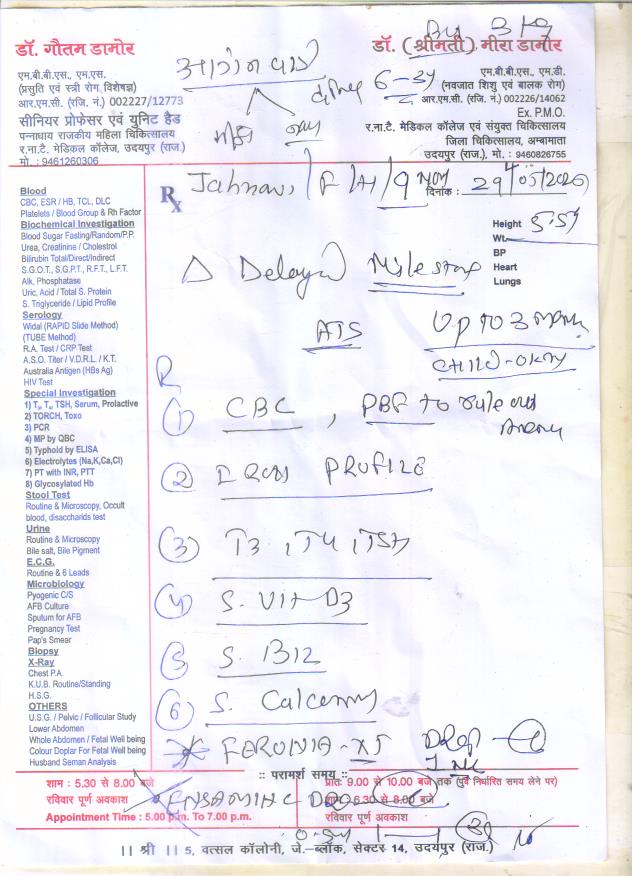 Bw 3 kg
डॉ. गौतम डामोर
डॉ. (श्रीमती) मीरा डामोर
एम.बी.बी.एस., एम.एस.
(प्रसुति एवं स्त्री रोग, विशेषज्ञ)
आर.एम.सी. (रजि. नं.) 002227/12773
सीनियर प्रोफेसर एवं युनिट हैड
पन्नाधाय राजकीय महिला चिकित्सालय
र.ना.टै. मेडिकल कॉलेज, उदयपुर (राज.)
मो. : 9461260306
एम.बी.बी.एस., एम.डी.
(नवजात शिशु एवं बालक रोग)
आर.एम.सी. (रजि. नं.) 002226/14062
Ex. P.M.O.
र.ना.टै. मेडिकल कॉलेज एवं संयुक्त चिकित्सालय
जिला चिकित्सालय, अम्बामाता
उदयपुर (राज.), मो. : 9460826755
Rx
दिनांक : 29/05/2020
Height
Wt.
BP
Heart
Lungs
Δ Delayed Milestone
Up to 3 month
Blood
CBC, ESR / HB, TCL, DLC
Platelets / Blood Group & Rh Factor
Biochemical Investigation
Blood Sugar Fasting/Random/P.P.
Urea, Creatinine / Cholestrol
Bilirubin Total/Direct/Indirect
S.G.O.T., S.G.P.T., R.F.T., L.F.T.
Alk, Phosphatase
Uric, Acid / Total S. Protein
S. Triglyceride / Lipid Profile
Serology
Widal (RAPID Slide Method)
(TUBE Method)
R.A. Test / CRP Test
A.S.O. Titer / V.D.R.L. / K.T.
Australia Antigen (HBs Ag)
HIV Test
Special Investigation
1) T₃, T₄, TSH, Serum, Prolactive
2) TORCH, Toxo
3) PCR
4) MP by QBC
5) Typhoid by ELISA
6) Electrolytes (Na,K,Ca,Cl)
7) PT with INR, PTT
8) Glycosylated Hb
Stool Test
Routine & Microscopy, Occult
blood, disaccharids test
Urine
Routine & Microscopy
Bile salt, Bile Pigment
E.C.G.
Routine & 6 Leads
Microbiology
Pyogenic C/S
AFB Culture
Sputum for AFB
Pregnancy Test
Pap's Smear
Biopsy
X-Ray
Chest P.A.
K.U.B. Routine/Standing
H.S.G.
OTHERS
U.S.G. / Pelvic / Follicular Study
Lower Abdomen
Whole Abdomen / Fetal Well being
Colour Doplar For Fetal Well being
Husband Seman Analysis
R
(1) CBC, PBF to rule out
(2) IRON PROFILE
(3) T3, T4, TSH
(4) S. Vit D3
(5) S. B12
(6) S. Calcium
FERONIA-XT Drop
:: परामर्श समय ::
शाम : 5.30 से 8.00 बजे
रविवार पूर्ण अवकाश
Appointment Time : 5.00 p.m. To 7.00 p.m.
प्रातः 9.00 से 10.00 बजे तक (पूर्व निर्धारित समय लेने पर)
शाम 6.30 से 8.00 बजे
रविवार पूर्ण अवकाश
।। श्री ।। 5, वत्सल कॉलोनी, जे.–ब्लॉक, सेक्टर 14, उदयपुर (राज.)